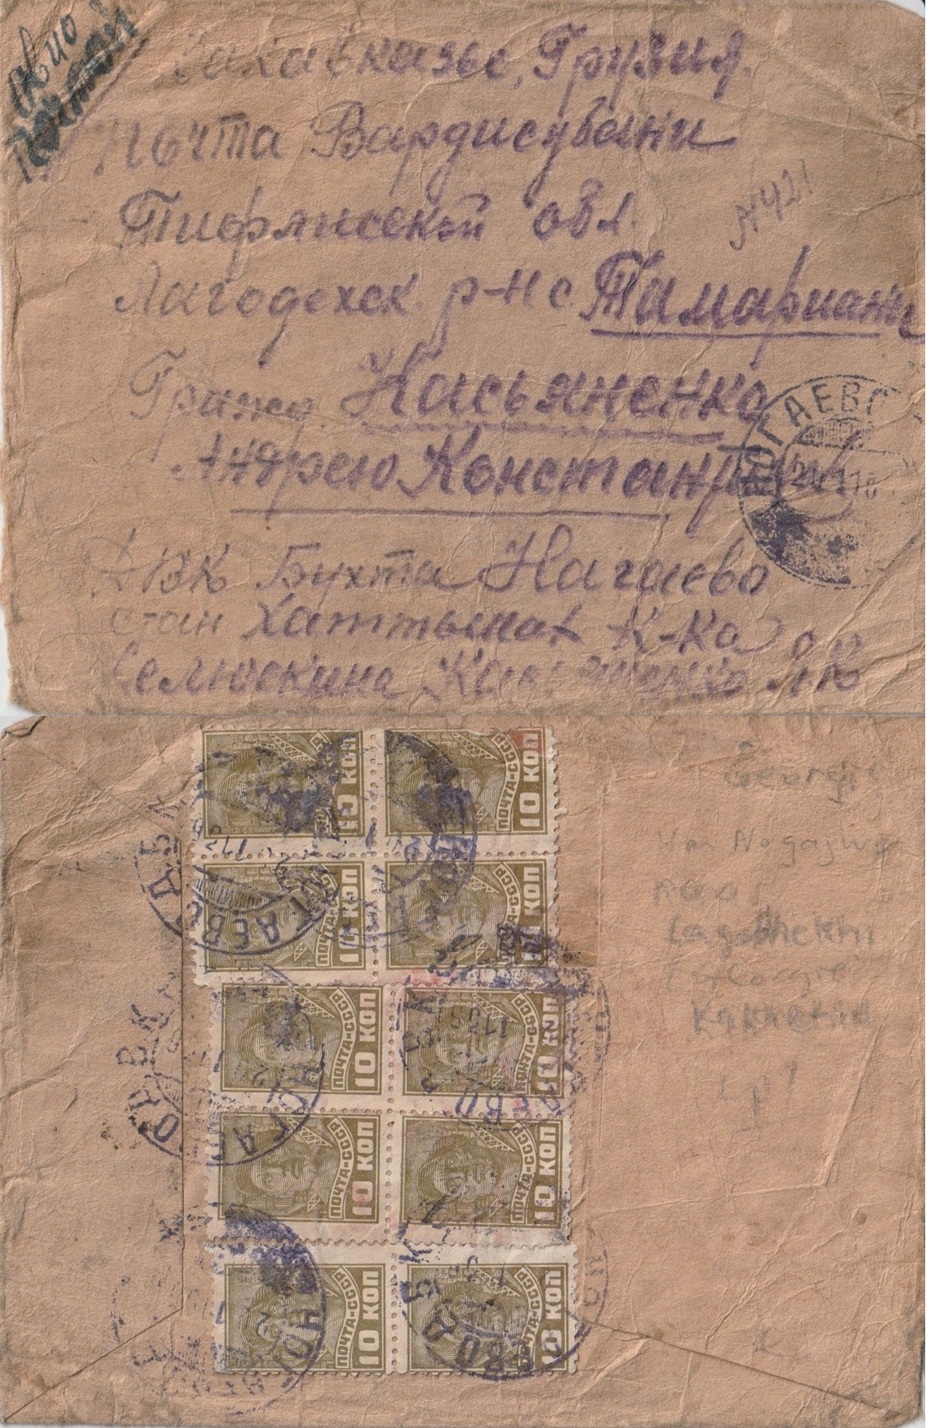 авио
почтой
Закавказье, Грузия.
Почта Вардисубани
Тифлисской обл.
№421
Лагодехск р-нс Тамариани
Гражд. Касьяненко
Андрею Константин
НОГАЕВО
ДВК Бухта Нагаево
стан Хаттынах К-ка
Челюскина Касьяненко А К
10 КОП
ПОЧТА·СССР
10 КОП
ПОЧТА·СССР
10 КОП
ПОЧТА·СССР
10 КОП
ПОЧТА·СССР
10 КОП
ПОЧТА·СССР
10 КОП
ПОЧТА·СССР
10 КОП
ПОЧТА·СССР
10 КОП
ПОЧТА·СССР
10 КОП
ПОЧТА·СССР
10 КОП
ПОЧТА·СССР
НОГАЕВО ДВК
Georgie
Van Nogajwo
naar
Lagodhekhi
Georgie
Kakhetia